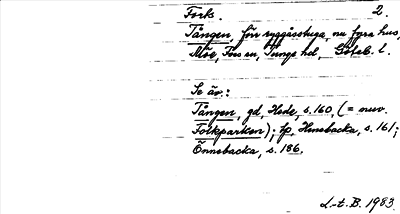 Fork. 2.
Tången, förr ryggåsstuga, nu fyra hus,
Möe, Foss sn, Tunge hd, Göteb. l.
Se äv.:
Tången, gd, Hede, s. 160, (= nuv.
Folkparken); lp, Hensbacka, s. 161;
Önnebacka, s. 186.
L-t. B. 1983